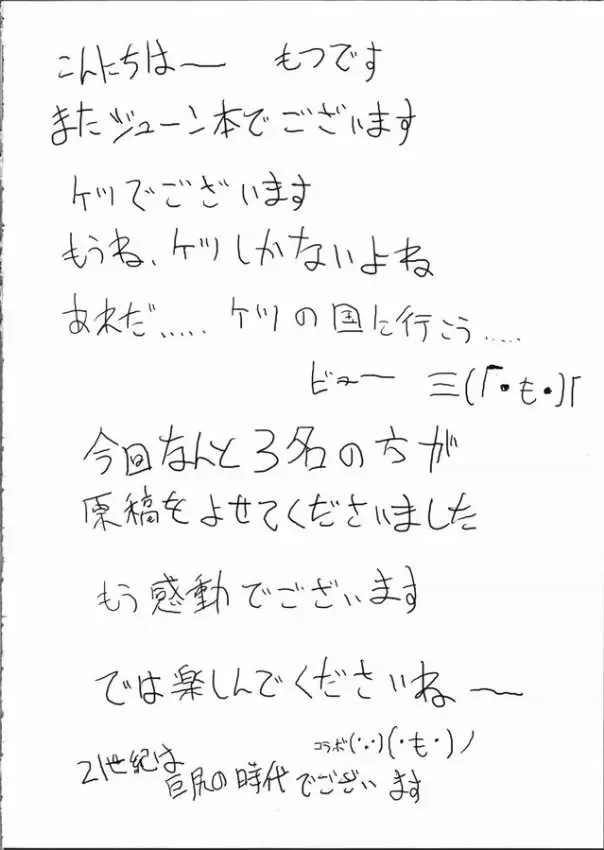 こんにちはー もつです
またジューン本でございます
ケツでございます
もうね、ケツしかないよね
あれだ..... ケツの国に行こう.....
ビューー 三(「・も・)「
今回なんと3名の方が
原稿をよせてくださいました
もう感動でございます
では楽しんでくださいねー
コラボ(・.・)(・も・)ノ
21世紀は
巨尻の時代でございます